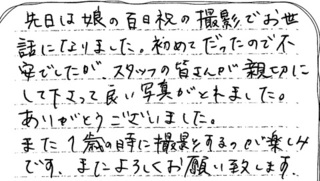 先日は娘の百日祝の撮影でお世
話になりました。初めてだったので不
安でしたが、スタッフの皆さんが親切に
して下さって良い写真がとれました。
ありがとうございました。
また1歳の時に撮影するのが楽しみ
です。またよろしくお願い致します。